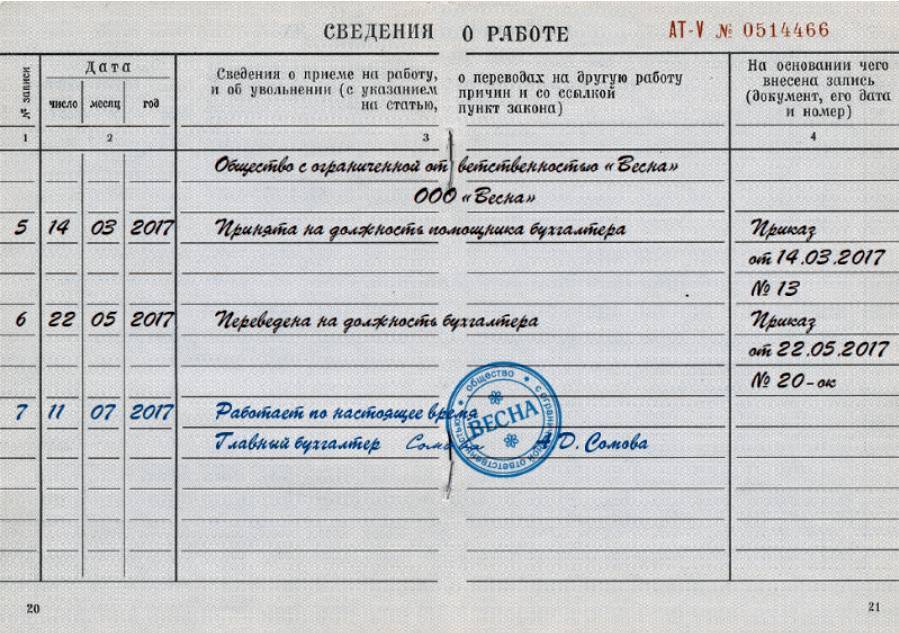 СВЕДЕНИЯ О РАБОТЕ АТ-V № 0514466
№ записи
Дата
число месяц год
Сведения о приеме на работу, о переводах на другую работу
и об увольнении (с указанием причин и со ссылкой
на статью, пункт закона)
На основании чего
внесена запись
(документ, его дата
и номер)
1 2 3 4
Общество с ограниченной ответственностью «Весна»
ООО «Весна»
5 14 03 2017 Принята на должность помощника бухгалтера Приказ
от 14.03.2017
№ 13
6 22 05 2017 Переведена на должность бухгалтера Приказ
от 22.05.2017
№ 20-ок
7 11 07 2017 Работает по настоящее время
Главный бухгалтер Сомова А.Д. Сомова
общество с ограниченной ответственностью
ВЕСНА
20 21